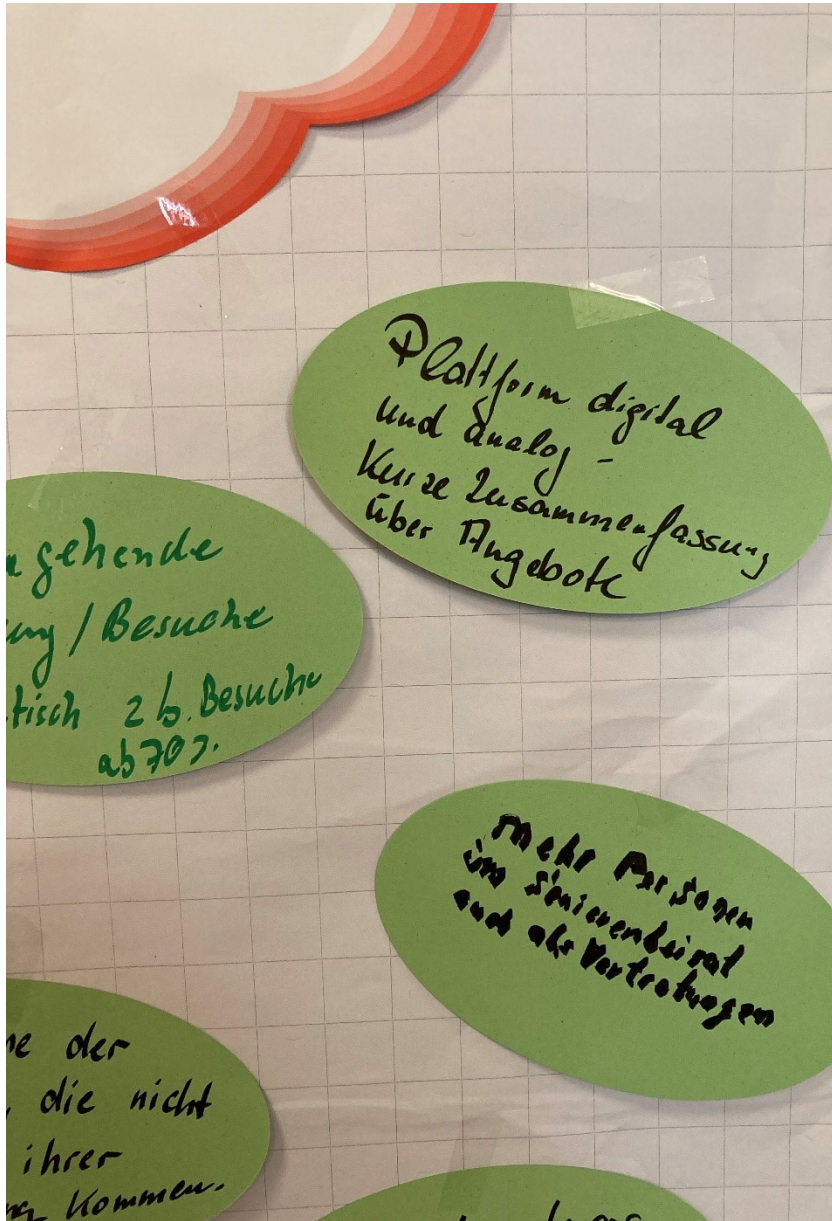 Plattform digital
und analog -
Kurze Zusammenfassung
über Angebote
gehende
/ Besuche
z b. Besuche
ab 70 J.
Mehr Personen
im Seniorenbeirat
auch als Vertretungen
der
die nicht
ihrer
kommen.